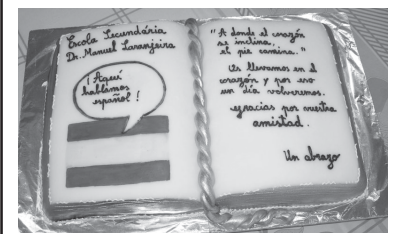 Escola Secundária
Dr. Manuel Laranjeira
¡Aquí
hablamos
español!
"A donde el corazón
se inclina,
el pie camina."
Os llevamos en el
corazón y por eso
un día volveremos.
Gracias por vuestra
amistad.
Un abrazo